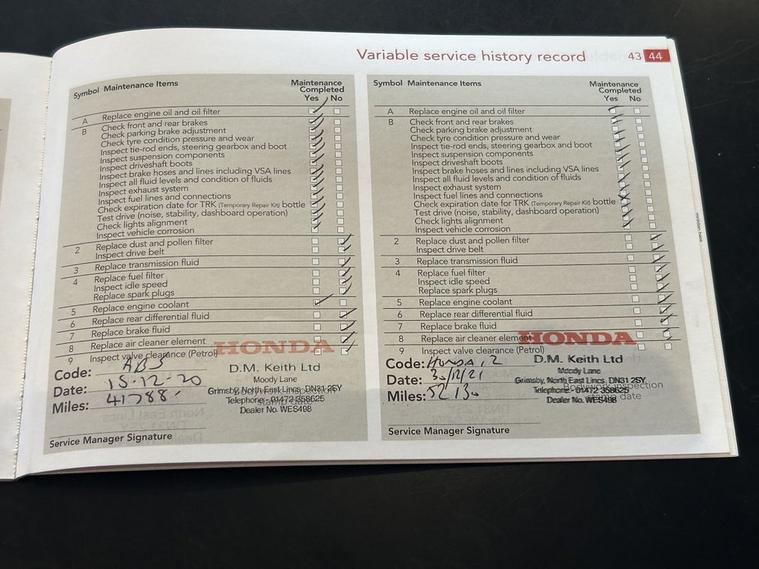 Variable service history record 43 44
Symbol Maintenance Items Maintenance Completed Yes No
A Replace engine oil and oil filter
B Check front and rear brakes
Check parking brake adjustment
Check tyre condition pressure and wear
Inspect tie-rod ends, steering gearbox and boot
Inspect suspension components
Inspect driveshaft boots
Inspect brake hoses and lines including VSA lines
Inspect all fluid levels and condition of fluids
Inspect exhaust system
Inspect fuel lines and connections
Check expiration date for TRK (Temporary Repair Kit) bottle
Test drive (noise, stability, dashboard operation)
Check lights alignment
Inspect vehicle corrosion
2 Replace dust and pollen filter
Inspect drive belt
3 Replace transmission fluid
4 Replace fuel filter
Inspect idle speed
Replace spark plugs
5 Replace engine coolant
6 Replace rear differential fluid
7 Replace brake fluid
8 Replace air cleaner element
9 Inspect valve clearance (Petrol)
HONDA
Code: AB5
D.M. Keith Ltd
Moody Lane
Date: 15-12-20
Grimsby, North East Lincs, DN31 2SY
Telephone:- 01472 358625
Miles: 41788
Dealer No. WES498
Service Manager Signature
Symbol Maintenance Items Maintenance Completed Yes No
A Replace engine oil and oil filter
B Check front and rear brakes
Check parking brake adjustment
Check tyre condition pressure and wear
Inspect tie-rod ends, steering gearbox and boot
Inspect suspension components
Inspect driveshaft boots
Inspect brake hoses and lines including VSA lines
Inspect all fluid levels and condition of fluids
Inspect exhaust system
Inspect fuel lines and connections
Check expiration date for TRK (Temporary Repair Kit) bottle
Test drive (noise, stability, dashboard operation)
Check lights alignment
Inspect vehicle corrosion
2 Replace dust and pollen filter
Inspect drive belt
3 Replace transmission fluid
4 Replace fuel filter
Inspect idle speed
Replace spark plugs
5 Replace engine coolant
6 Replace rear differential fluid
7 Replace brake fluid
8 Replace air cleaner element
9 Inspect valve clearance (Petrol)
HONDA
Code:
D.M. Keith Ltd
Moody Lane
Date: 30/12/21
Grimsby, North East Lincs, DN31 2SY
Telephone:- 01472 358625
Miles: 52130
Dealer No. WES498
Service Manager Signature